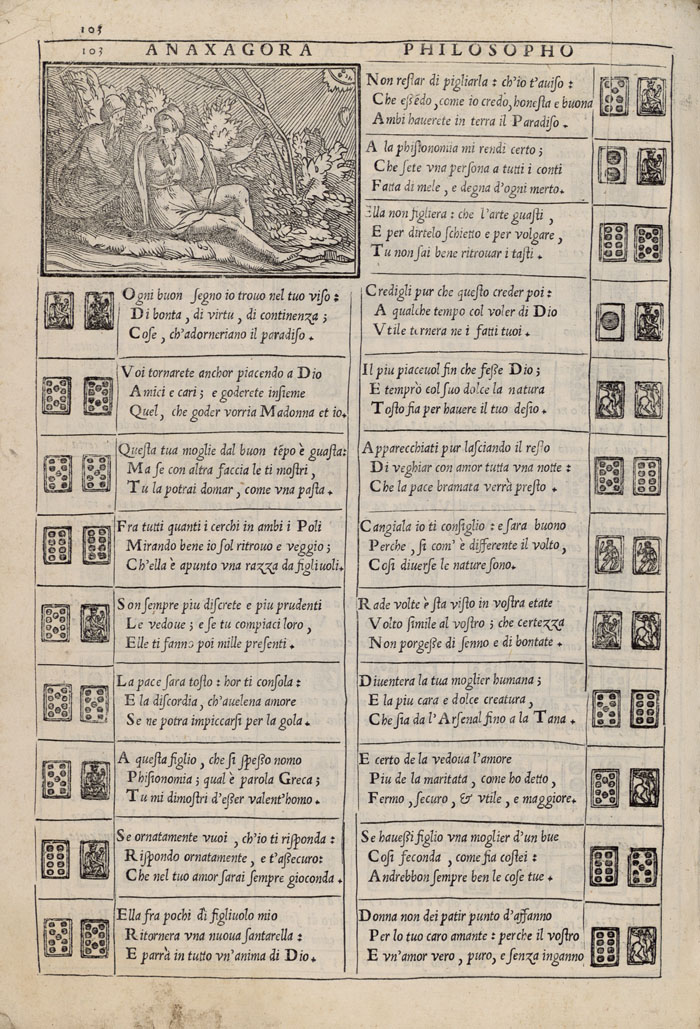 103
103 ANAXAGORA PHILOSOPHO
Ogni buon segno io trouo nel tuo viso :
Di bonta, di virtu, di continenza ;
Cose, ch'adorneriano il paradiso .
Voi tornarete anchor piacendo a Dio
Amici e cari ; e goderete insieme
Quel, che goder vorria Madonna et io.
Questa tua moglie dal buon tẽpo è guasta:
Ma se con altra faccia le ti mostri,
Tu la potrai domar, come vna pasta .
Fra tutti quanti i cerchi in ambi i Poli
Mirando bene io sol ritrouo e veggio ;
Ch'ella è apunto vna razza da figliuoli.
Son sempre piu discrete e piu prudenti
Le vedoue ; e se tu compiaci loro ,
Elle ti fanno poi mille presenti .
La pace sara tosto : hor ti consola :
E la discordia, ch'auelena amore
Se ne potra impiccarsi per la gola .
A questa figlio, che si spesso nomo
Phisionomia ; qual è parola Greca ;
Tu mi dimostri d'esser valent'homo .
Se ornatamente vuoi, ch'io ti risponda :
Rispondo ornatamente, e t'assecuro:
Che nel tuo amor sarai sempre gioconda .
Ella fra pochi dì figliuolo mio
Ritornera vna nuoua santarella :
E parrà in tutto vn'anima di Dio .
Non restar di pigliarla : ch'io t'auiso :
Che essẽdo, come io credo, honesta e buona
Ambi hauerete in terra il Paradiso .
A la phisionomia mi rendi certo ;
Che sete vna persona a tutti i conti
Fatta di mele, e degna d'ogni merto.
Ella non figliera : che l'arte guasti ,
E per dirtelo schietto e per volgare ,
Tu non sai bene ritrouar i tasti .
Credigli pur che questo creder poi :
A qualche tempo col voler di Dio
Vtile tornera ne i fatti tuoi .
Il piu piaceuol fin che fesse Dio ;
E temprò col suo dolce la natura
Tosto fia per hauere il tuo desio .
Apparecchiati pur lasciando il resto
Di veghiar con amor tutta vna notte :
Che la pace bramata verrà presto .
Cangiala io ti consiglio : e sara buono
Perche, si com' è differente il volto ,
Cosi diuerse le nature sono .
Rade volte è sta visto in vostra etate
Volto simile al vostro ; che certezza
Non porgesse di senno e di bontate .
Diuentera la tua moglier humana ;
E la piu cara e dolce creatura ,
Che sia da l'Arsenal fino a la Tana .
E certo de la vedoua l'amore
Piu de la maritata, come ho detto ,
Fermo, securo, & vtile, e maggiore.
Se hauessi figlio vna moglier d'un bue
Cosi feconda, come fia costei :
Andrebbon sempre ben le cose tue .
Donna non dei patir punto d'affanno
Per lo tuo caro amante : perche il vostro
E vn'amor vero, puro, e senza inganno